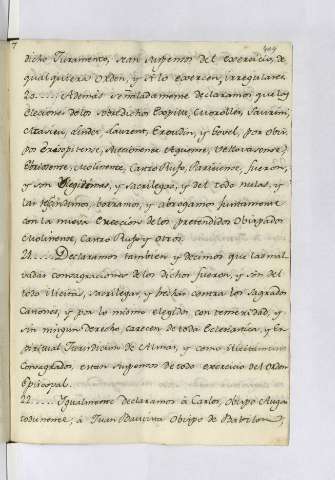 7 409
dicho Juramento, sean suspensos del exercicio, de
qualquiera orden, y si lo exercen, irregulares.
20..... Ademas señaladamente declaramos que las
elecciones de los sobredichos Expilli, Marolles, Saurini,
Massieu, Lindet, Laurent, Eraudin, y Gobel, por Obis-
pos
y son sacrilegas, y del todo nulas, y
las rescindimos, borramos, y abrogamos juntamente
con la nueva Ereccion de los pretendidos Obispados
Molinense, Castro Rufo, y otros.
21.... Declaramos tambien y decimos que las mal-
vadas consagraciones de los dichos fueron, y son del
todo ilicitas, sacrilegas, y hechas contra los Sagrados
Canones, y por lo mismo elegidos con temeridad, y
sin ningun derecho, carecen de toda Eclesiastica, y Es-
piritual Jurisdicion de Almas, y como ilicitamente
Consagrados, estan suspensos de todo exercicio del Orden
Episcopal.
22.... Igualmente Declaramos à Carlos, Obispo Augus-
todunense; à Juan Bautista Obispo de Babilonia,